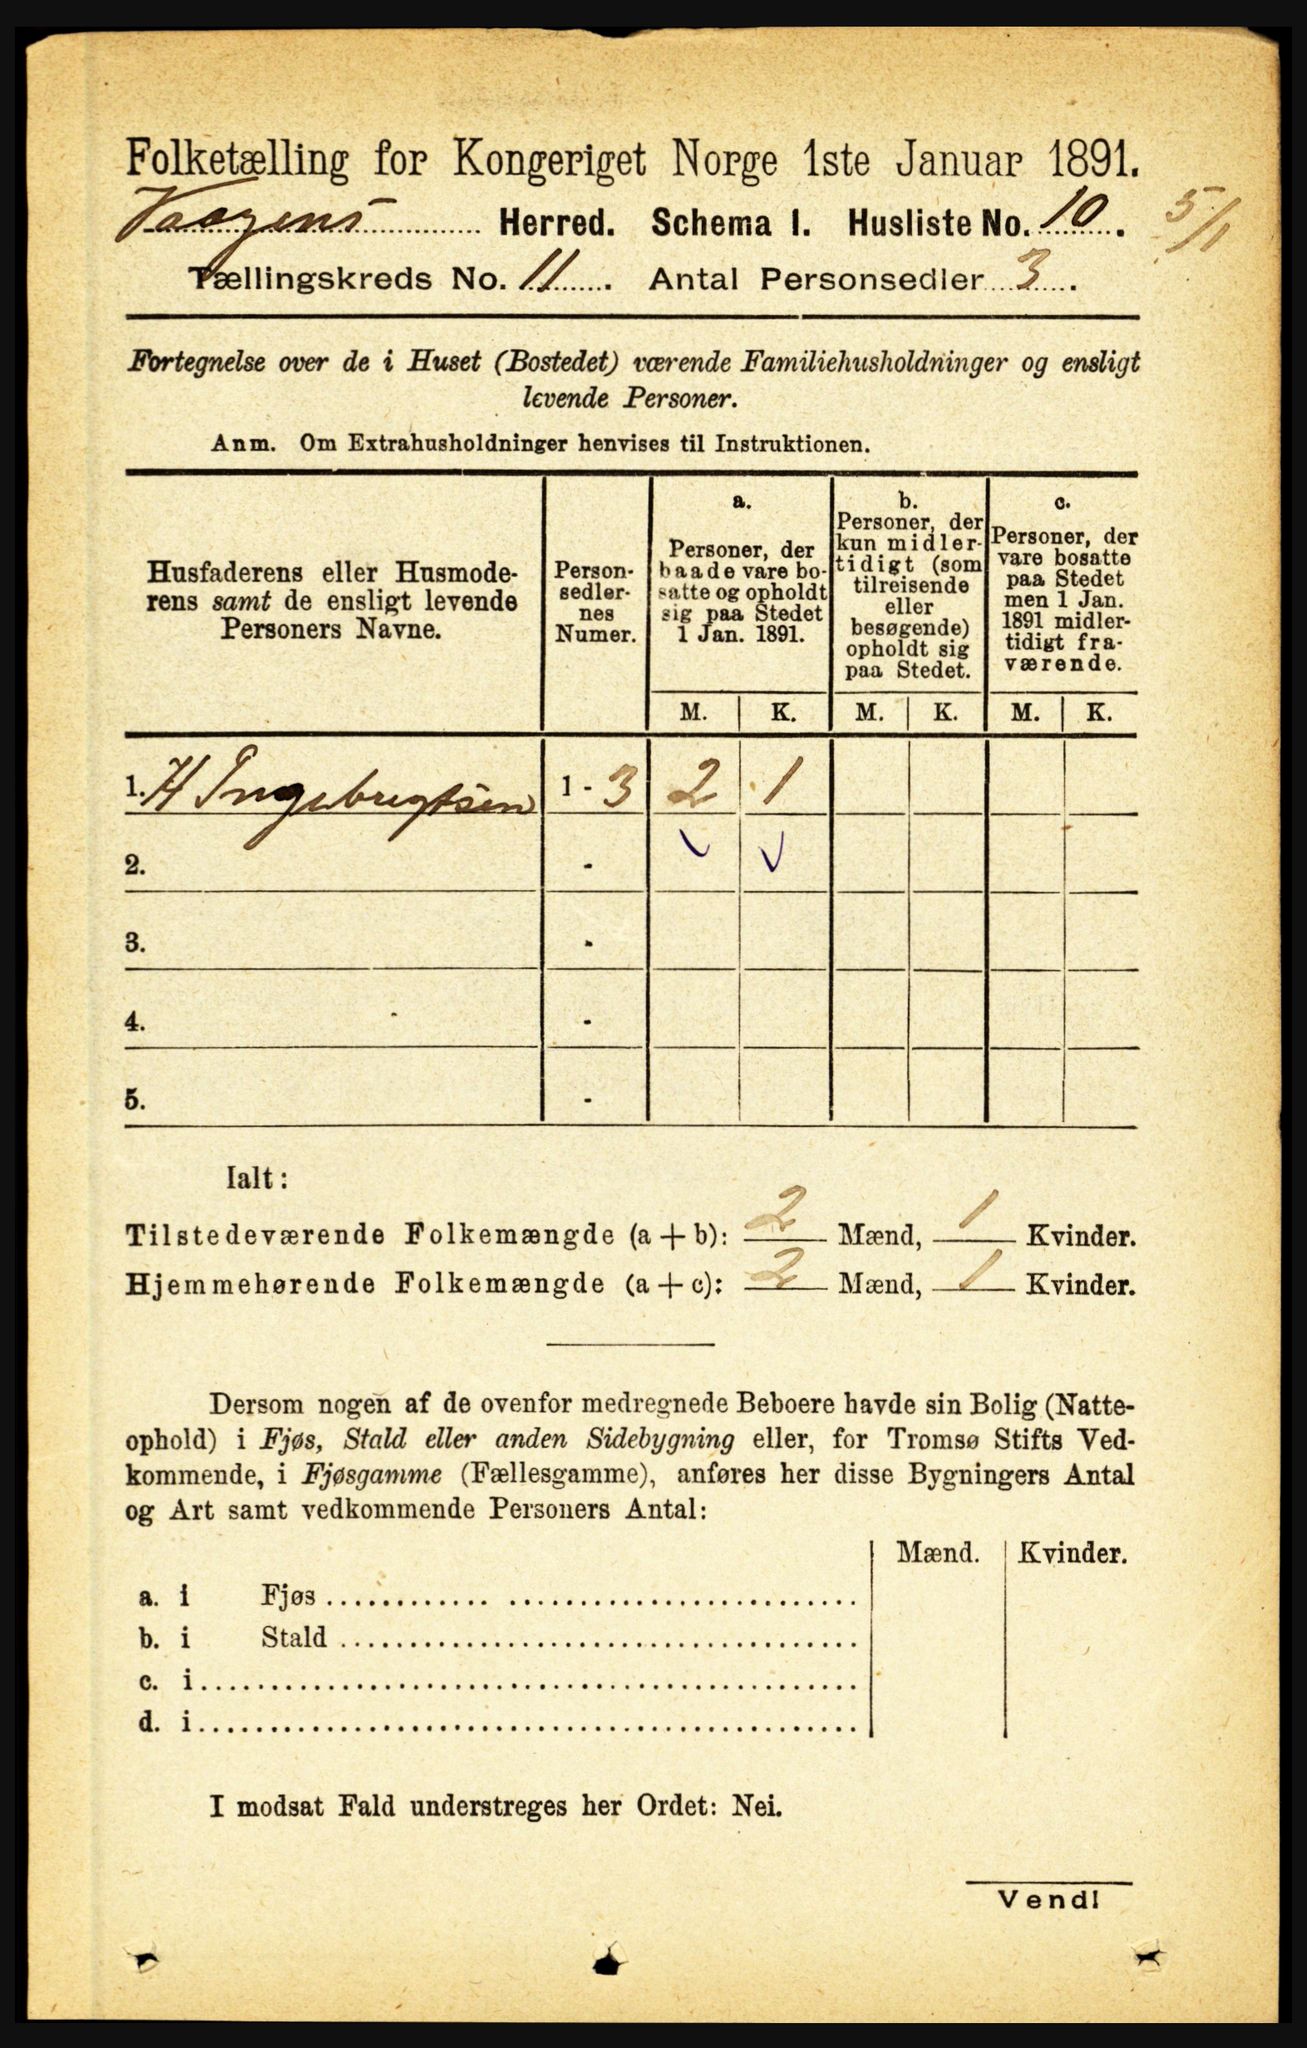 Folketælling for Kongeriget Norge 1ste Januar 1891.
Vaagens Herred. Schema I. Husliste No. 10. 5/1
Tællingskreds No. 11. Antal Personsedler 3.
Fortegnelse over de i Huset (Bostedet) værende Familiehusholdninger og ensligt
levende Personer.
Anm. Om Extrahusholdninger henvises til Instruktionen.
Husfaderens eller Husmode-
rens samt de ensligt levende
Personers Navne.
Person-
sedler-
nes
Numer.
a.
Personer, der
baade vare bo-
satte og opholdt
sig paa Stedet
1 Jan. 1891.
b.
Personer, der
kun midler-
tidigt (som
tilreisende
eller
besøgende)
opholdt sig
paa Stedet.
c.
Personer, der
vare bosatte
paa Stedet
men 1 Jan.
1891 midler-
tidigt fra-
værende.
M. K. M. K. M. K.
1. H Ingebrigtsen 1 - 3 2 1
2. -
3. -
4. -
5. -
Ialt:
Tilstedeværende Folkemængde (a + b): 2 Mænd, 1 Kvinder.
Hjemmehørende Folkemængde (a + c): 2 Mænd, 1 Kvinder.
Dersom nogen af de ovenfor medregnede Beboere havde sin Bolig (Natte-
ophold) i Fjøs, Stald eller anden Sidebygning eller, for Tromsø Stifts Ved-
kommende, i Fjøsgamme (Fællesgamme), anføres her disse Bygningers Antal
og Art samt vedkommende Personers Antal:
Mænd. Kvinder.
a. i Fjøs
b. i Stald
c. i
d. i
I modsat Fald understreges her Ordet: Nei.
Vend!